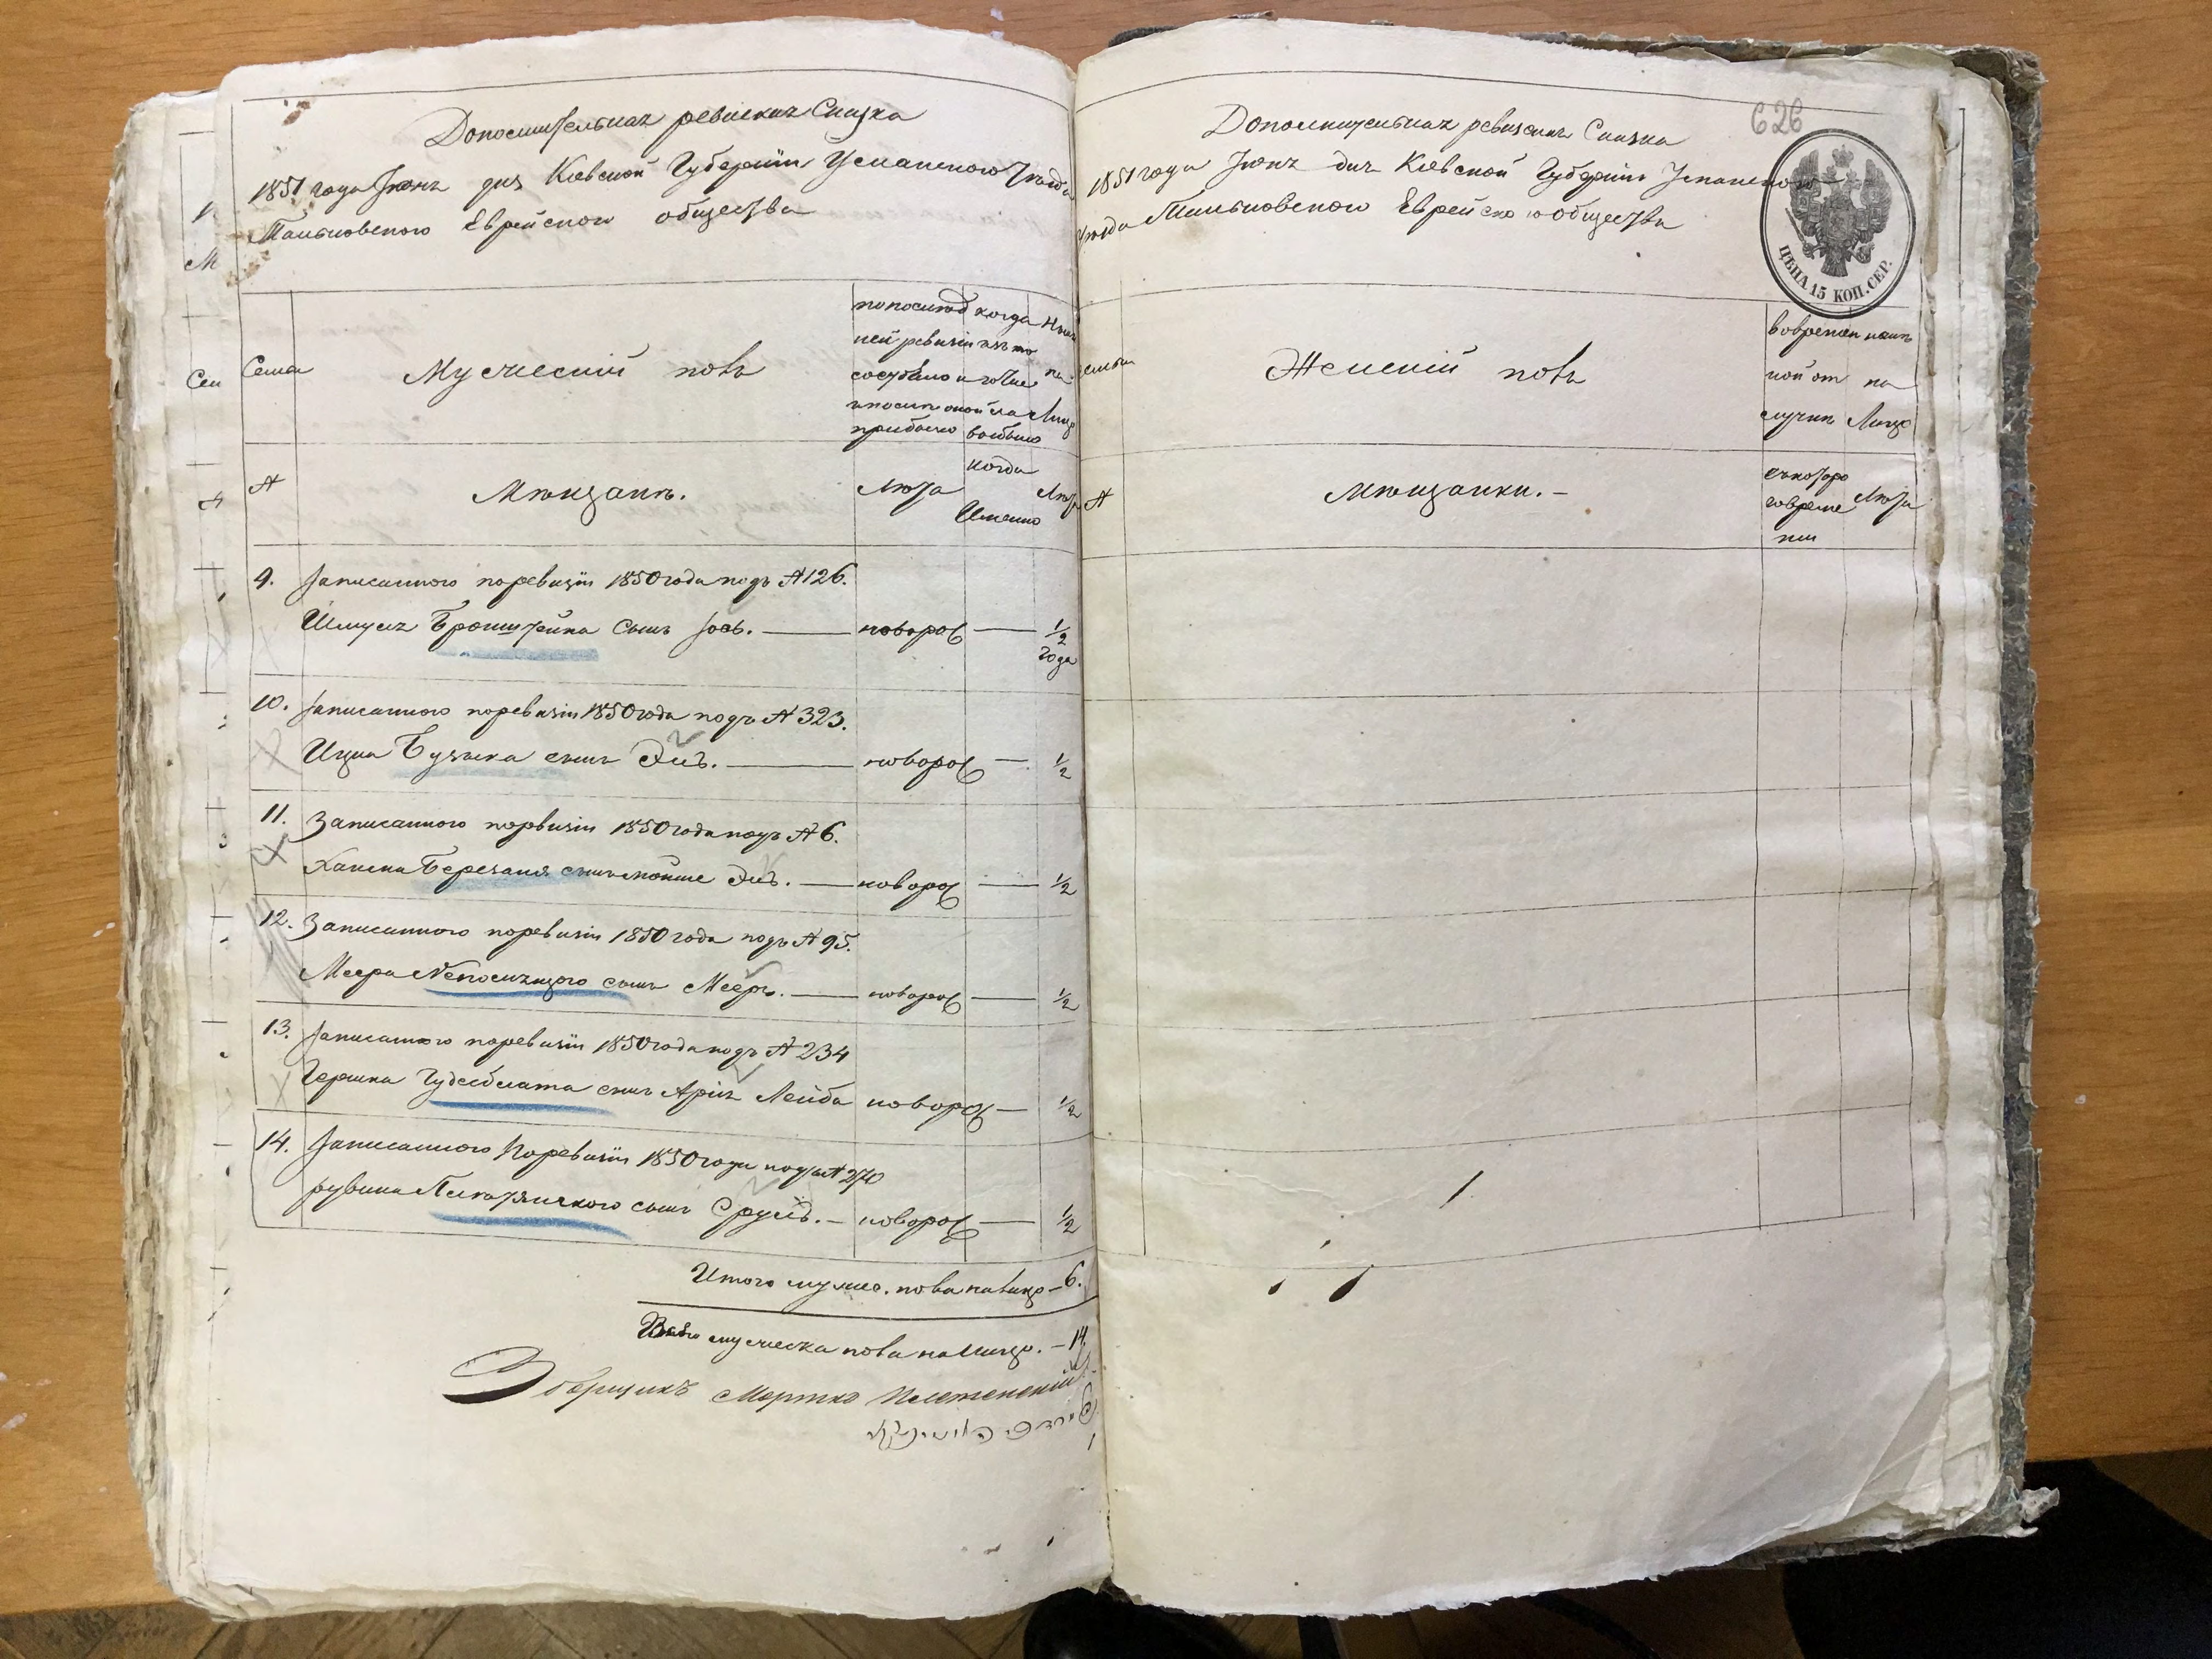 Дополнительная ревизская Сказка
1851 года Июня дня Киевской Губернiи Уманского Уезда
Тальновского Еврейского общества
Семья
Мужескiй полъ
по послед
ней ревизiи
состояло и
после оной
прибыло
когда
изъ то
го числа
выбыло
Ныне
на
Лицо
№
Мещане.
Лета
когда
Имено
Лета
9. Записанного по ревизiи 1850 года подъ № 126.
Шмуля Бронштейна сынъ Iось. новорож 1/2
года
10. Записанного по ревизiи 1850 года подъ № 323.
Ицка Бузыка сынъ Эль. новорож 1/2
11. Записанного по ревизiи 1850 года подъ № 6.
Хаима Березаня сынъ Мойше новорож 1/2
12. Записанного по ревизiи 1850 года подъ № 95.
Меера сынъ Мееръ. новорож 1/2
13. Записанного по ревизiи 1850 года подъ № 234
Гершка Гудсблата сынъ Арiя Лейба новорож 1/2
14. Записанного по ревизiи 1850 года подъ № 270
рувина сынъ Сруль. новорож 1/2
Итого мужес. пола на лицо 6.
Всего мужеска пола на лицо. 14.
Зборщикъ Мортко
626
Дополнительная ревизская Сказка
1851 года Июня дня Киевской Губернiи Уманского
Уезда Тальновского Еврейского общества
ЦѢНА 15 КОП. СЕР.
семья
Женскiй полъ
во времен
ной от
лучки
ныне
на
Лицо
№
Мещанки.
съ которо
го време
ни
Лета